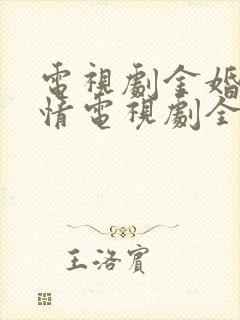 電視劇金婚
情電視劇全
王洛賓